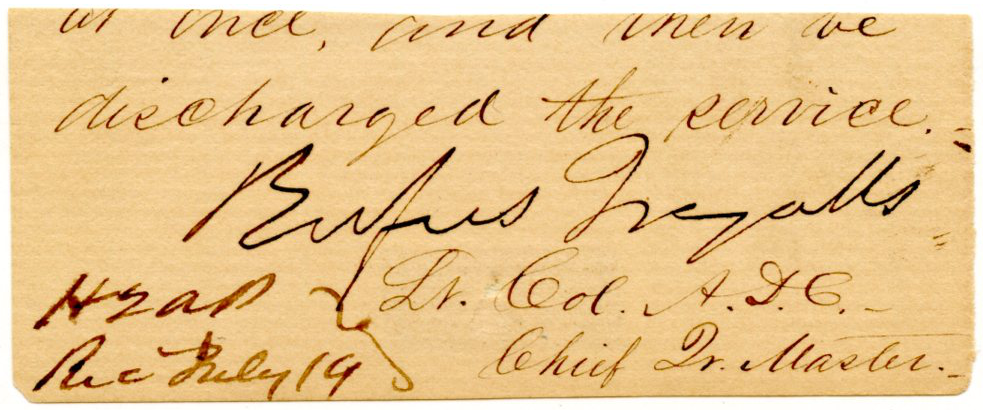 at once, and then be
discharged the service.
Rufus Ingalls
Lt. Col. A.D.C.
Chief Qr. Master.
Rec July 19